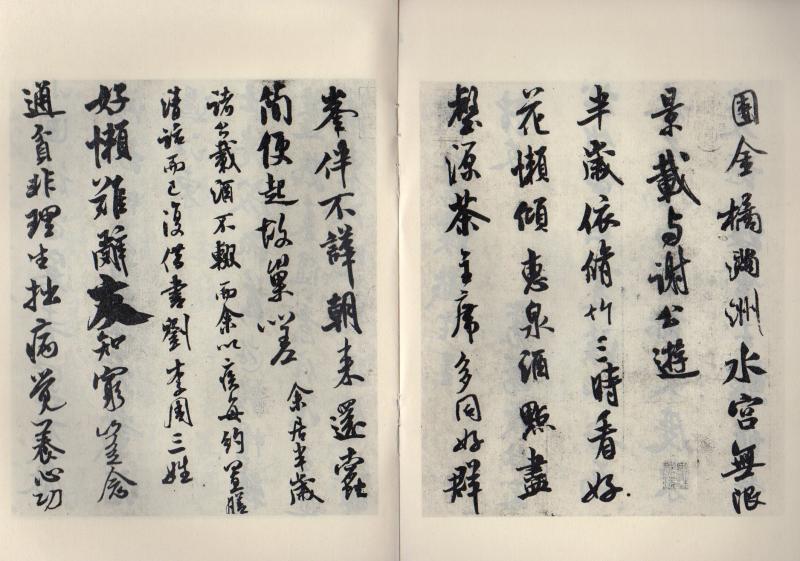 團金橘滿洲水宮無限
景載与謝公遊
半歲依脩竹三時看好
花懶傾惠泉酒點盡
壑源茶主席多同好群
峯伴不譁朝来還蠹
簡便起故巢嗟
余居半歲
諸公載酒不輟而余以疾每約置膳
清話而已復借書劉李周三姓
好懶難辭友知窮豈念
通貧非理生拙病覺養心功